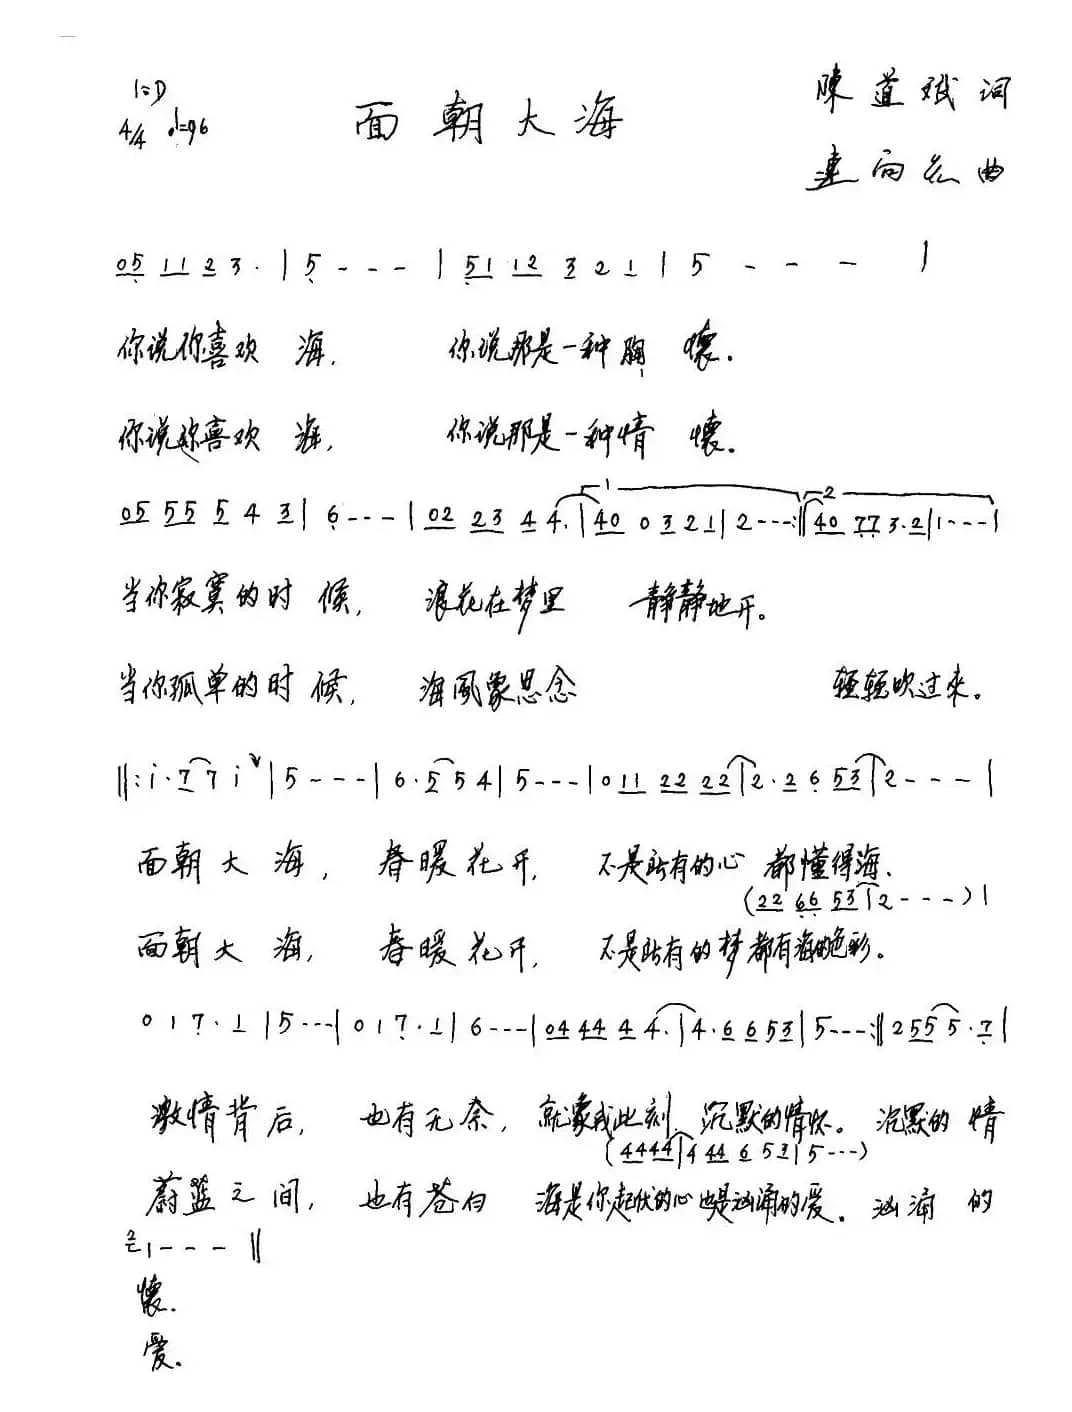 1=D
4/4 ♩=96
面朝大海
陳道斌词
連向先曲
05 11 2 3 · | 5 - - - | 51 12 3 2 1 | 5 - - - |
你说你喜欢 海, 你说那是一种胸 懷.
你说你喜欢 海, 你说那是一种情 懷。
05 55 5 4 3 | 6 - - - | 02 23 4 4. | 40 0 3 2 1 | 2 - - - :|| 40 77 3·2 | 1 - - - |
1 2
当你寂寞的时 候, 浪花在梦里 静静地开。
当你孤单的时 候, 海風象思念 轻轻吹过来。
||: i · 7 7 i | 5 - - - | 6 · 5 5 4 | 5 - - - | 0 11 22 22 | 2 · 2 6 53 | 2 - - - |
面朝大海, 春暖花开, 不是所有的心 都懂得海.
(22 66 53 | 2 - - - ) |
面朝大海, 春暖花开, 不是所有的梦都有海的色彩。
0 1 7 · 1 | 5 - - - | 0 1 7 · 1 | 6 - - - | 04 44 4 4. | 4 · 6 6 53 | 5 - - - :|| 2 55 5 · 7 |
激情背后, 也有无奈, 就象我此刻 沉默的情怀。 沉默的 情
(4444 | 4 44 6 53 | 5 - - - )
蔚蓝之间, 也有苍白 海是你起伏的心也是汹涌的爱。 汹涌 的
2 1 - - - ||
懷.
爱.